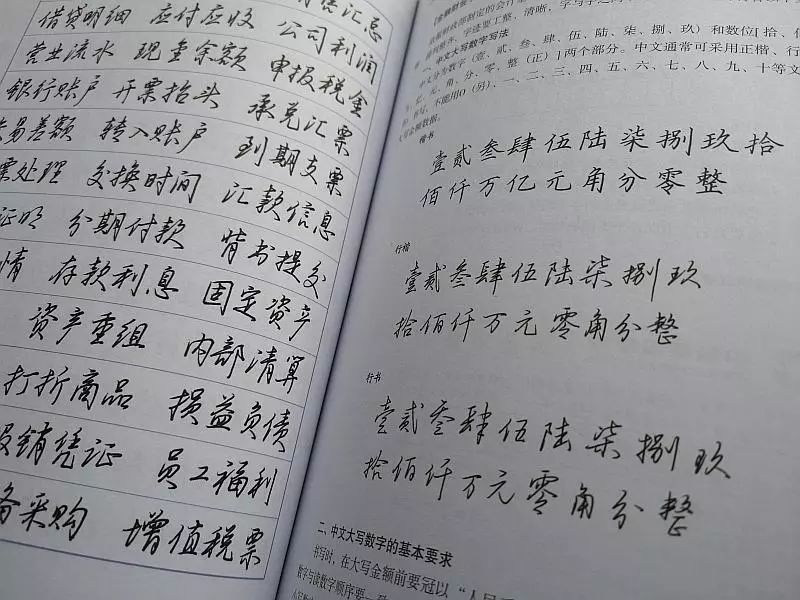 借贷明细 应付应收 公司利润
营业流水 现金余额 申报税金
银行账户 开票抬头 承兑汇票
易差额 转入账户 到期支票
票处理 交换时间 汇款信息
证明 分期付款 背书提交
情 存款利息 固定资产
资产重组 内部清算
打折商品 损益负债
报销凭证 员工福利
备采购 增值税票
中文大写数字写法
中文分为数字(壹、贰、叁、肆、伍、陆、柒、捌、玖)和数位[拾、
亿、元、角、分、零、整(正)]两个部分。中文通常可采用正楷、行
书写,不能用0(另)、一、二、三、四、五、六、七、八、九、十等文
楷书
壹贰叁肆伍陆柒捌玖拾
佰仟万亿元角分零整
行楷
壹贰叁肆伍陆柒捌玖
拾佰仟万元零角分整
行书
壹贰叁肆伍陆柒捌玖
拾佰仟万元零角分整
二、中文大写数字的基本要求
书写时,在大写金额前要冠以“人民
数字与读数字顺序要一